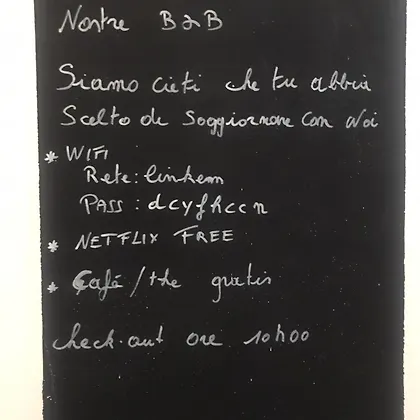 Nostre B&B
Siamo lieti che tu abbia
Scelto de Soggiornare con Noi
* WIFI
Rete: linkem
PASS: dcyfhccn
* NETFLIX FREE
* Café/the gratis
check-out ore 10h00